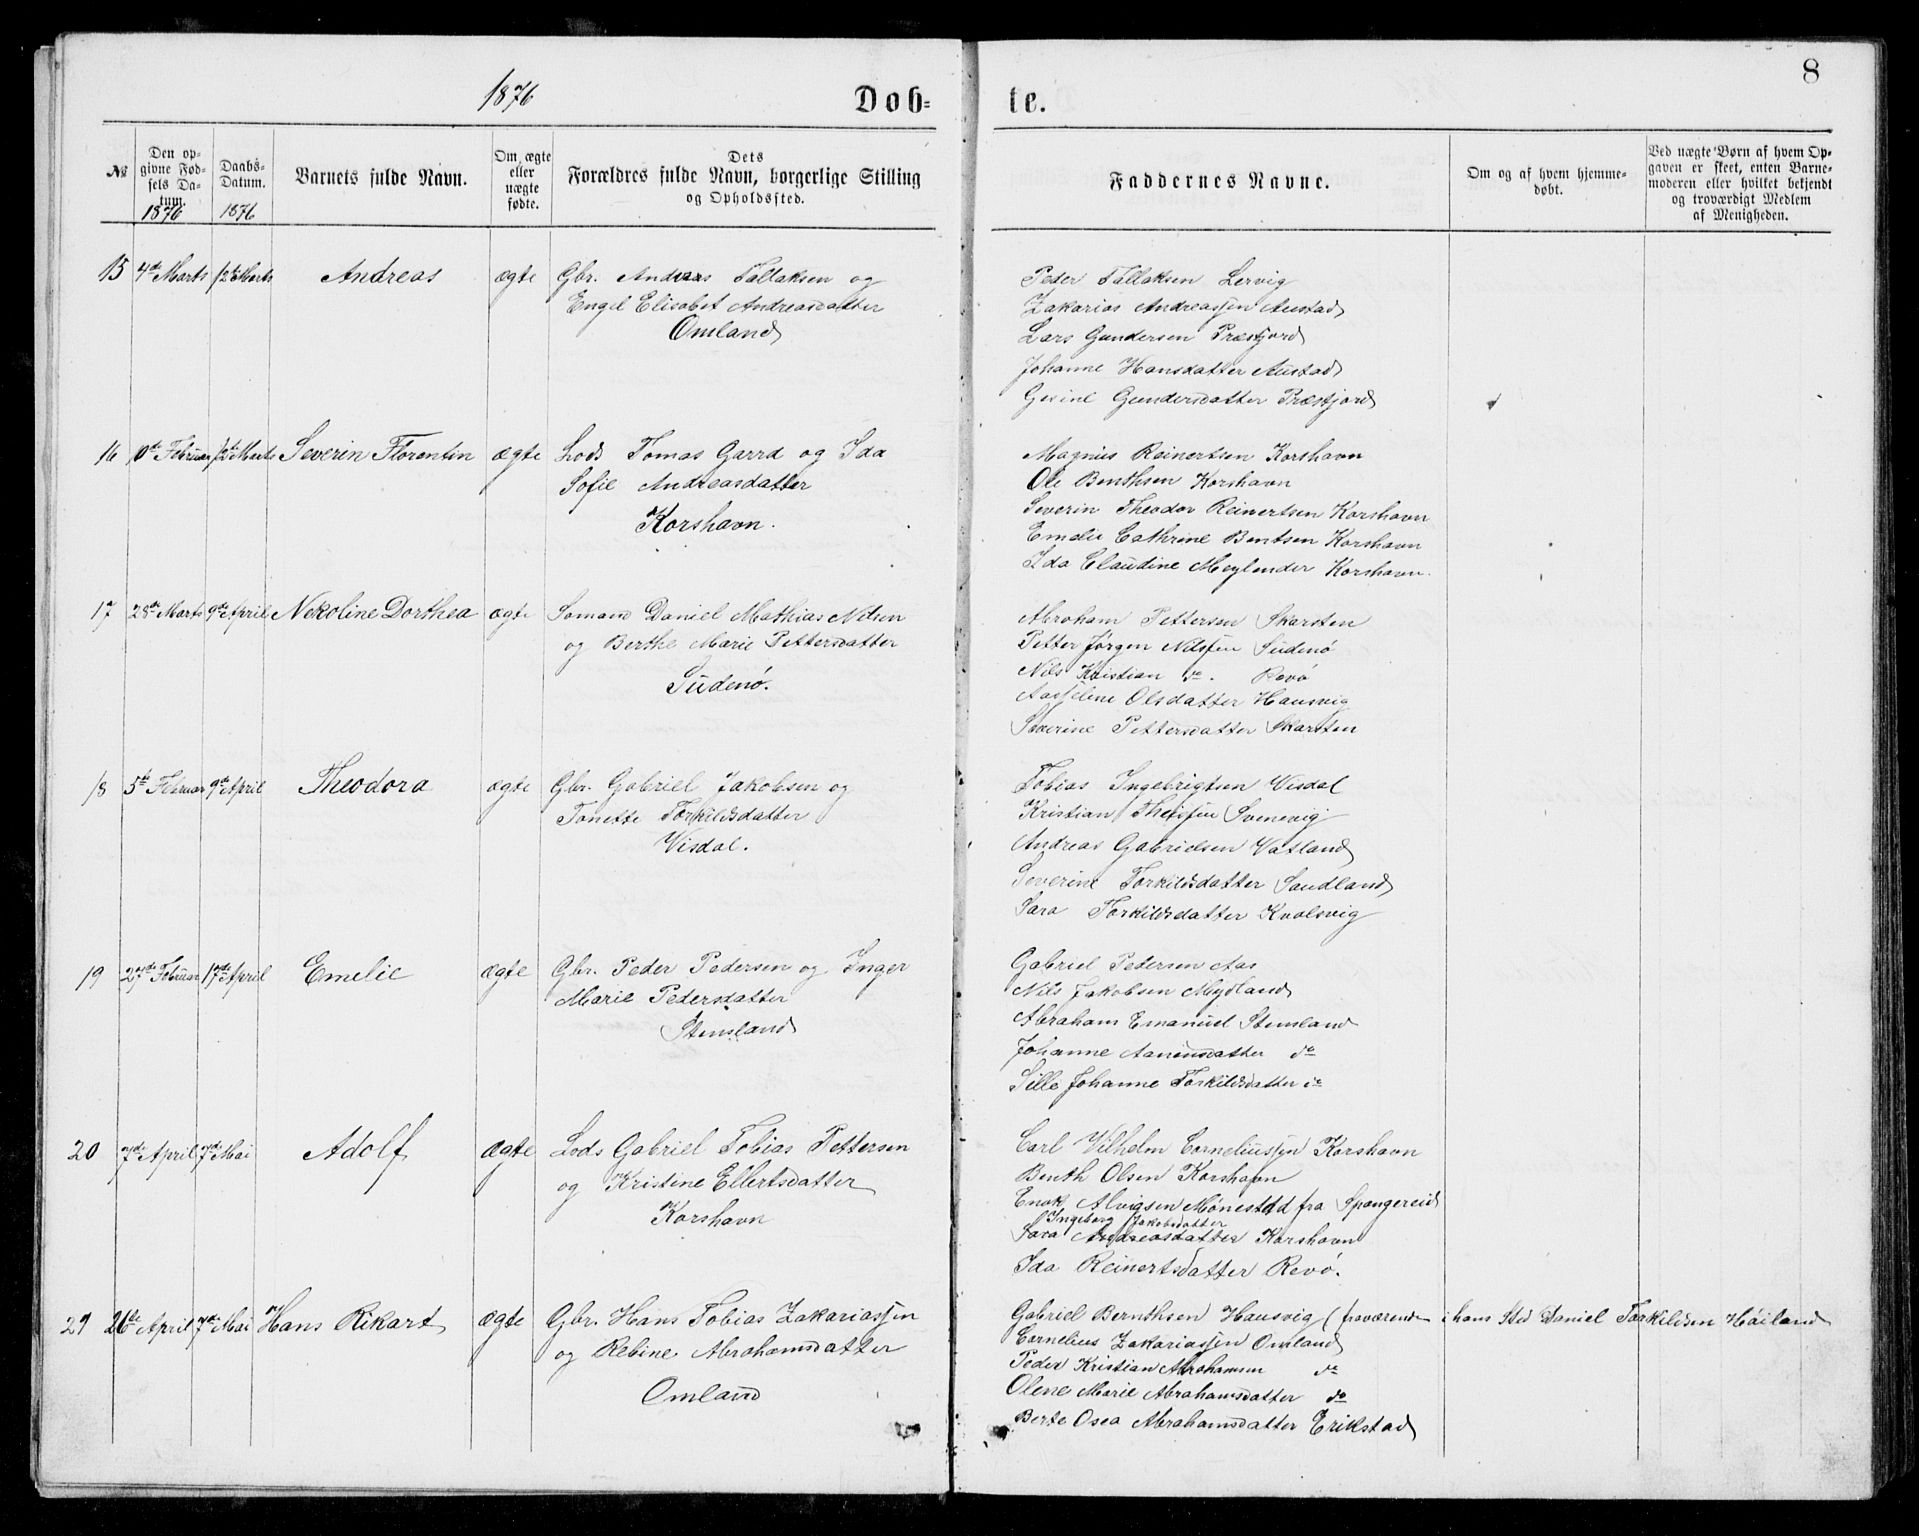 1876 Døb- te. 8
№ Den opgivne Fødsels Datum. 1876 Daabs-Datum. 1876 Barnets fulde Navn. Om ægte eller uægte fødte. Dets Forældres fulde Navn, borgerlige Stilling og Opholdssted. Faddernes Navne. Om og af hvem hjemmedøbt. Ved uægte Børn af hvem Opgaven er skeet, enten Barnemoderen eller hvilket bekjendt og troværdigt Medlem af Menigheden.
15 4de Marts 12te Marts Andreas ægte Gbr. Andreas Tallaksen og
Engel Elisabet Andreasdatter
Omland
Peder Tallaksen Lervig
Zakarias Andreassen Austad
Lars Gundersen Præstjord
Johanne Hansdatter Austad
Gesine Gundersdatter Præstjord
16 Februar 12te Marts Severin Florentin ægte Lods Tomas Garrd og Ida
Sofie Andreasdatter
Korshavn.
Magnus Reinertsen Korshavn
Ole Benthsen Korshavn
Severin Theodor Reinertsen Korshavn
Emelie Cathrine Bentsen Korshavn
Ida Claudine Meylender Korshavn.
17 28de Marts 9de April Nekoline Dorthea ægte Sømand Daniel Mathias Nilsen
og Berthe Marie Pettersdatter
Südenö.
Abraham Pettersen Skarsten
Petter Jørgen Nilssen Südenö
Nils Kristian do. Revö
Aasselene Olsdatter Hausvig
Severine Pettersdatter Skarsten
18 5te Februar 9de April Theodora ægte Gbr. Gabriel Jakobsen og
Tonette Torkildsdatter
Visdal.
Tobias Ingebrigtsen Visdal
Kristian Theissen Svenevig
Andreas Gabrielsen Vatland
Severine Torkildsdatter Sandland
Sara Torkildsdatter Kvalsvig
19 27de Februar 17de April Emelie ægte Gbr. Peder Pedersen og Inger
Marie Pedersdatter
Stensland
Gabriel Pedersen Aas
Nils Jakobsen Mydland
Abraham Emanuel Stensland
Johanne Aanensdatter do
Sille Johanne Torkildsdatter do
20 7de April 7de Mai Adolf ægte Lods Gabriel Tobias Pettersen
og Kristine Ellertsdatter
Korshavn
Carl Vilhelm Corneliussen Korshavn
Benth Olsen Korshavn
Enok Alvigsen Mönestad fra Spangereid
Ingeborg Jakobsdatter
Sara Andreasdatter Korshavn
Ida Reinertsdatter Revö.
21 26de April 7de Mai Hans Rikart ægte Gbr. Hans Tobias Zakariassen
og Rebine Abrahamsdatter
Omland
Gabriel Bernthsen Hausvig (fraværende i hans Sted Daniel Torkildsen Höiland
Cornelius Zakariassen Omland
Peder Kristian Abrahamsen do
Olene Marie Abrahamsdatter do
Berte Osea Abrahamsdatter Erikstad